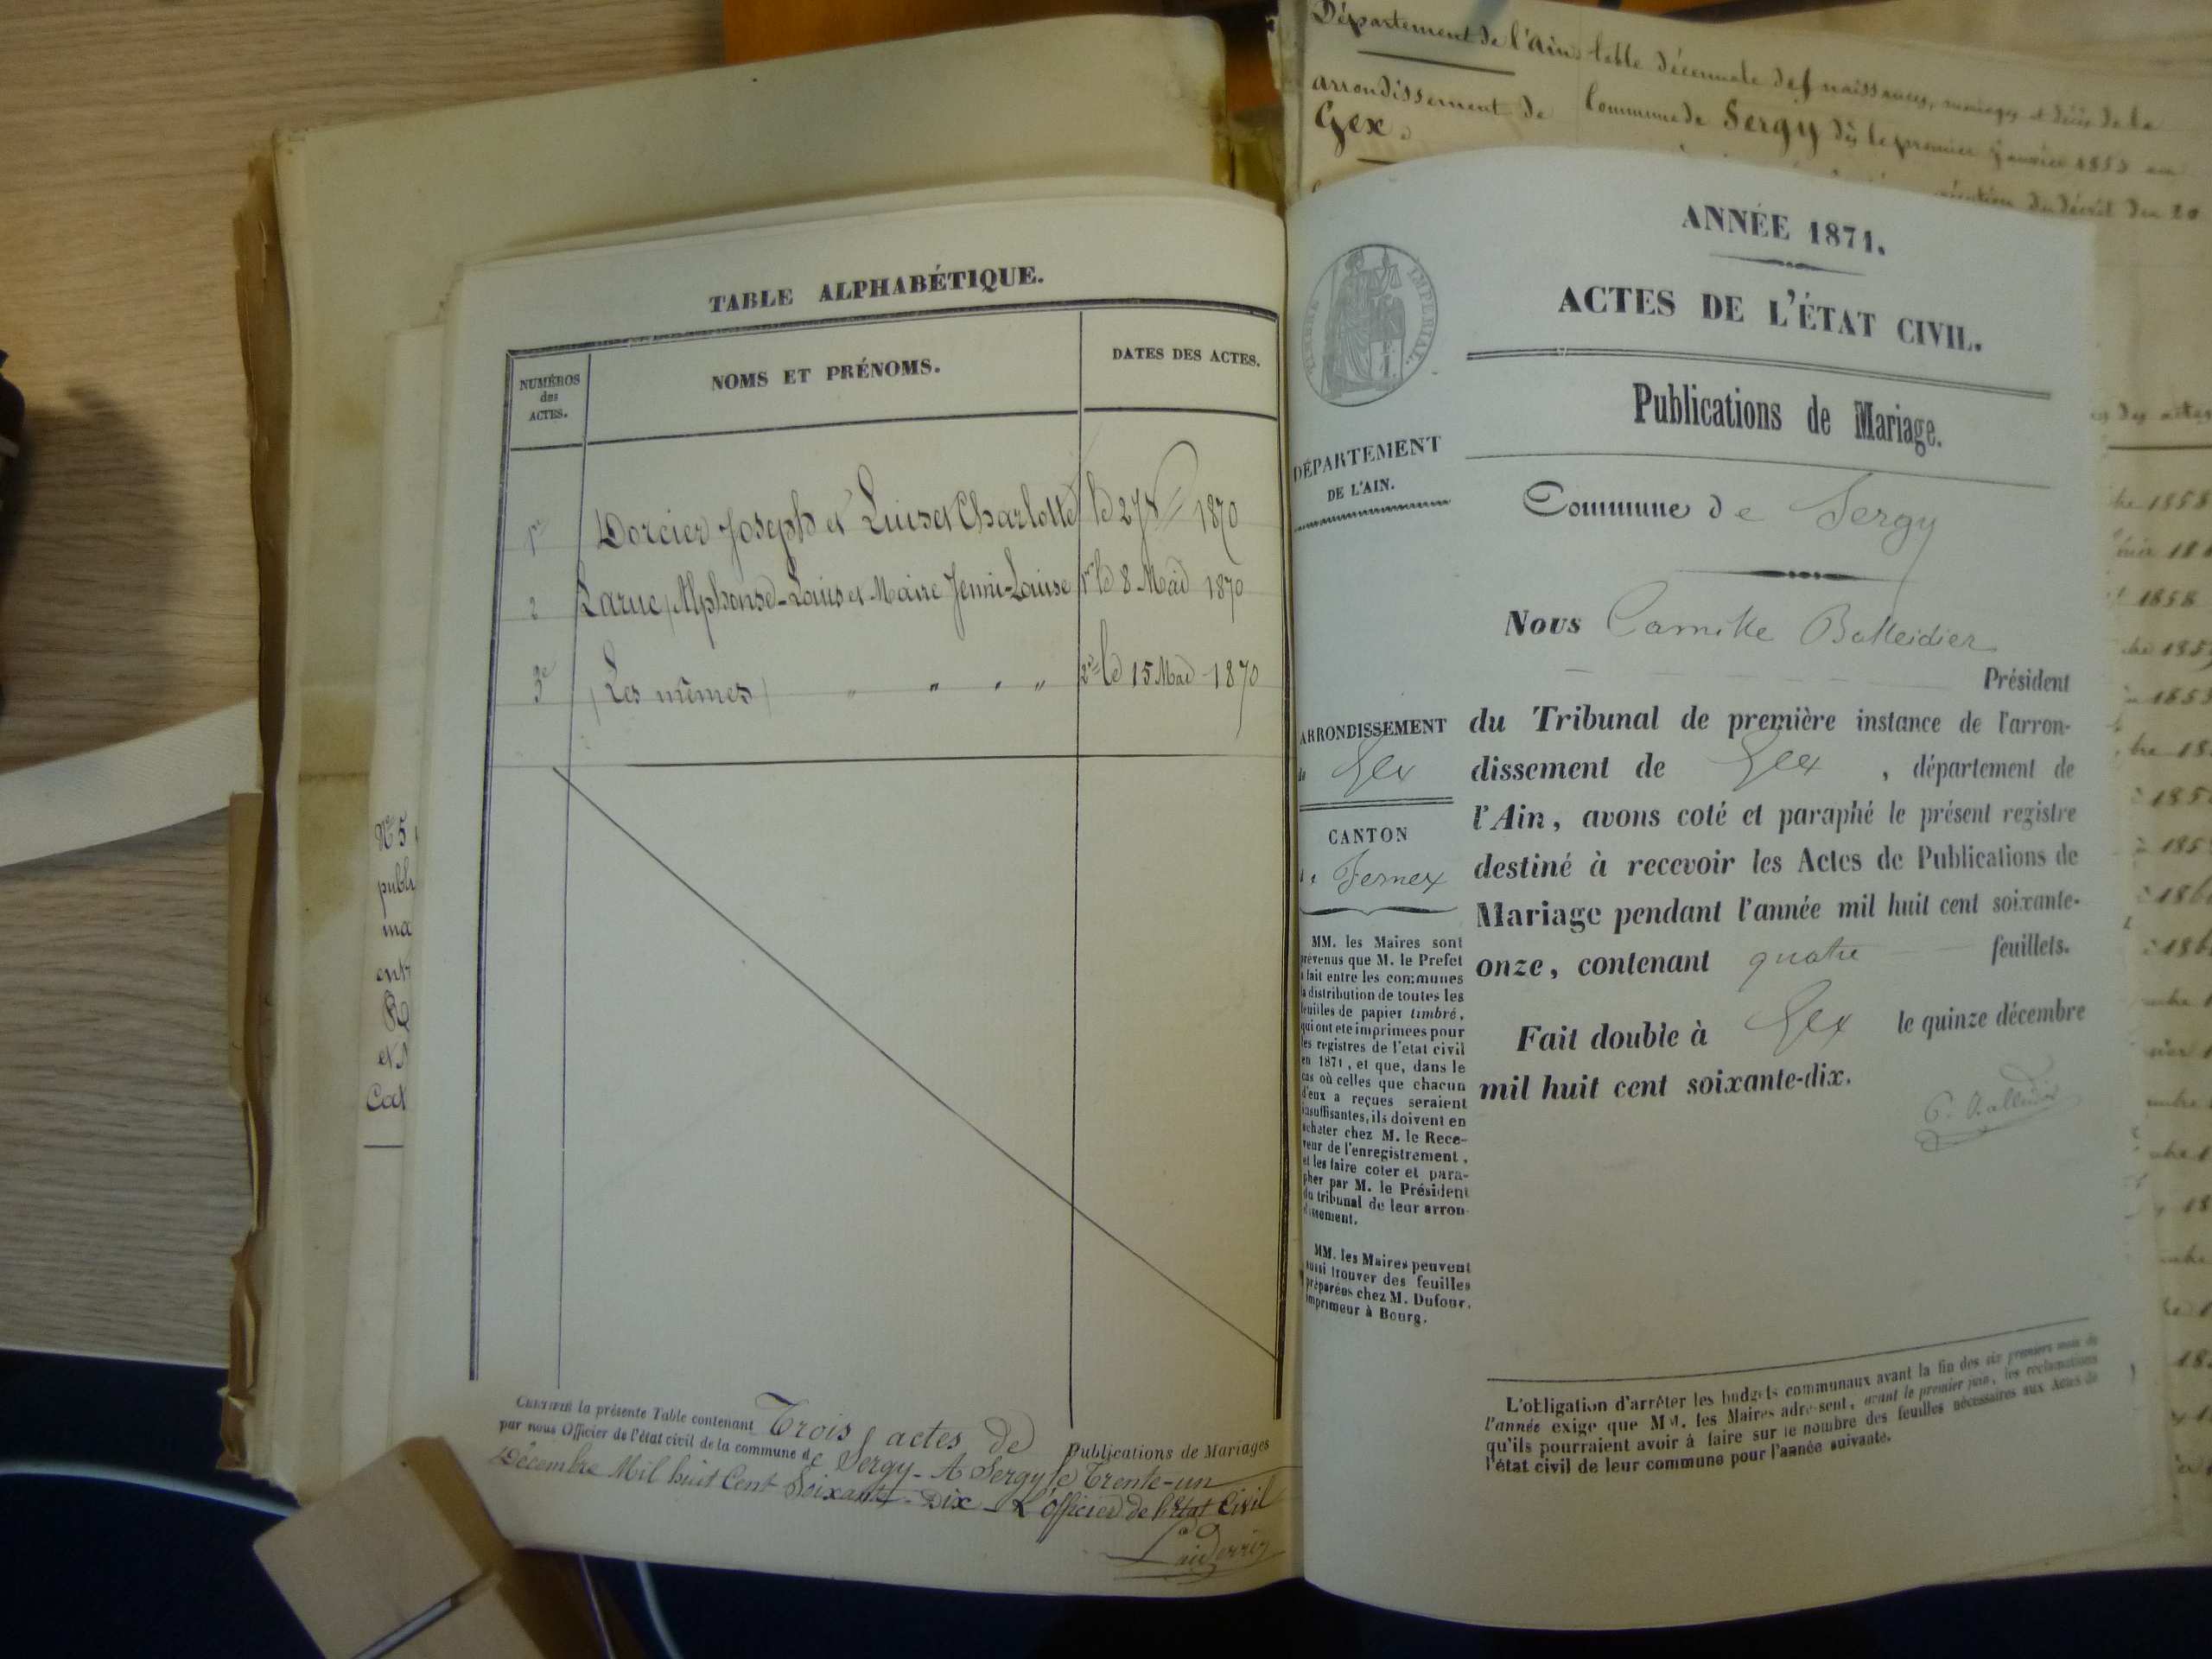 TABLE ALPHABÉTIQUE.
NUMÉROS
des
ACTES.
NOMS ET PRÉNOMS.
DATES DES ACTES.
Dorcier Joseph et Charlotte le 27 1870
2 Larue Alphonse-Louis et Jenni-Louise 1er le 8 Mai 1870
3e Les mêmes " " " " le 15 Mai 1870
CERTIFIÉ la présente Table contenant Trois actes de Publications de Mariages
par nous Officier de l'état civil de la commune de Sergy - A Sergy le Trente-un
Décembre Mil huit Cent Soixante-Dix - L'officier de l'Etat Civil
N° 5
publ
ma
ent
et
Cat
Département de l'Ain
arrondissement de
Gex.
table décennale des naissances, mariages et décès de la
Commune de Sergy dès le premier janvier 1853 au
du décret du 20
des actes
ANNÉE 1871.
ACTES DE L'ÉTAT CIVIL.
Publications de Mariage.
TIMBRE IMPÉRIAL.
DÉPARTEMENT
DE L'AIN.
Commune de Sergy
Nous Camille Balleidier
Président
du Tribunal de première instance de l'arron-
dissement de Gex , département de
l'Ain, avons coté et paraphé le présent registre
destiné à recevoir les Actes de Publications de
Mariage pendant l'année mil huit cent soixante-
onze, contenant quatre feuillets.
Fait double à Gex le quinze décembre
mil huit cent soixante-dix.
C. Balleidier
ARRONDISSEMENT
de Gex
CANTON
de Fernex
MM. les Maires sont
prévenus que M. le Prefet
a fait entre les communes
la distribution de toutes les
feuilles de papier timbré,
qui ont ete imprimees pour
les registres de l'etat civil
en 1871, et que, dans le
cas où celles que chacun
d'eux a reçues seraient
insuffisantes, ils doivent en
acheter chez M. le Rece-
veur de l'enregistrement,
et les faire coter et para-
pher par M. le Président
du tribunal de leur arron-
dissement.
MM. les Maires peuvent
aussi trouver des feuilles
préparées chez M. Dufour,
imprimeur à Bourg.
L'obligation d'arrêter les budgets communaux avant la fin des six premiers mois de
l'année exige que MM. les Maires adressent, avant le premier juin, les reclamations
qu'ils pourraient avoir à faire sur le nombre des feuilles nécessaires aux Actes de
l'état civil de leur commune pour l'année suivante.